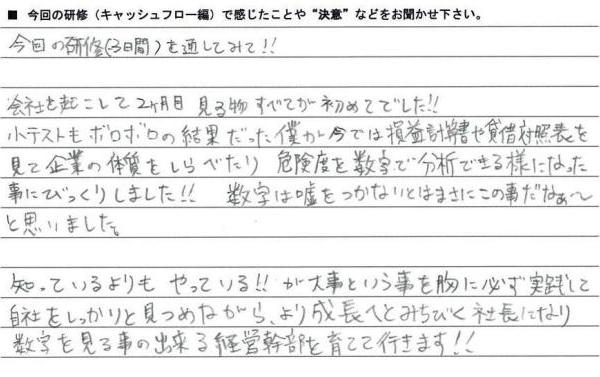 ■ 今回の研修（キャッシュフロー編）で感じたことや“決意”などをお聞かせ下さい。
今回の研修(3日間)を通してみて!!
会社を起こして2ヶ月目 見る物すべてが初めてでした!!
小テストもボロボロの結果だった僕が今では損益計算書や貸借対照表を
見て企業の体質をしらべたり 危険度を数字で分析できる様になった
事にびっくりしました!! 数字は嘘をつかないとはまさにこの事だなぁ〜
と思いました。
知っているよりも やっている!! が大事という事を胸に必ず実践して
自社をしっかりと見つめながら、より成長へとみちびく社長になり
数字を見る事の出来る経営幹部を育てて行きます!!